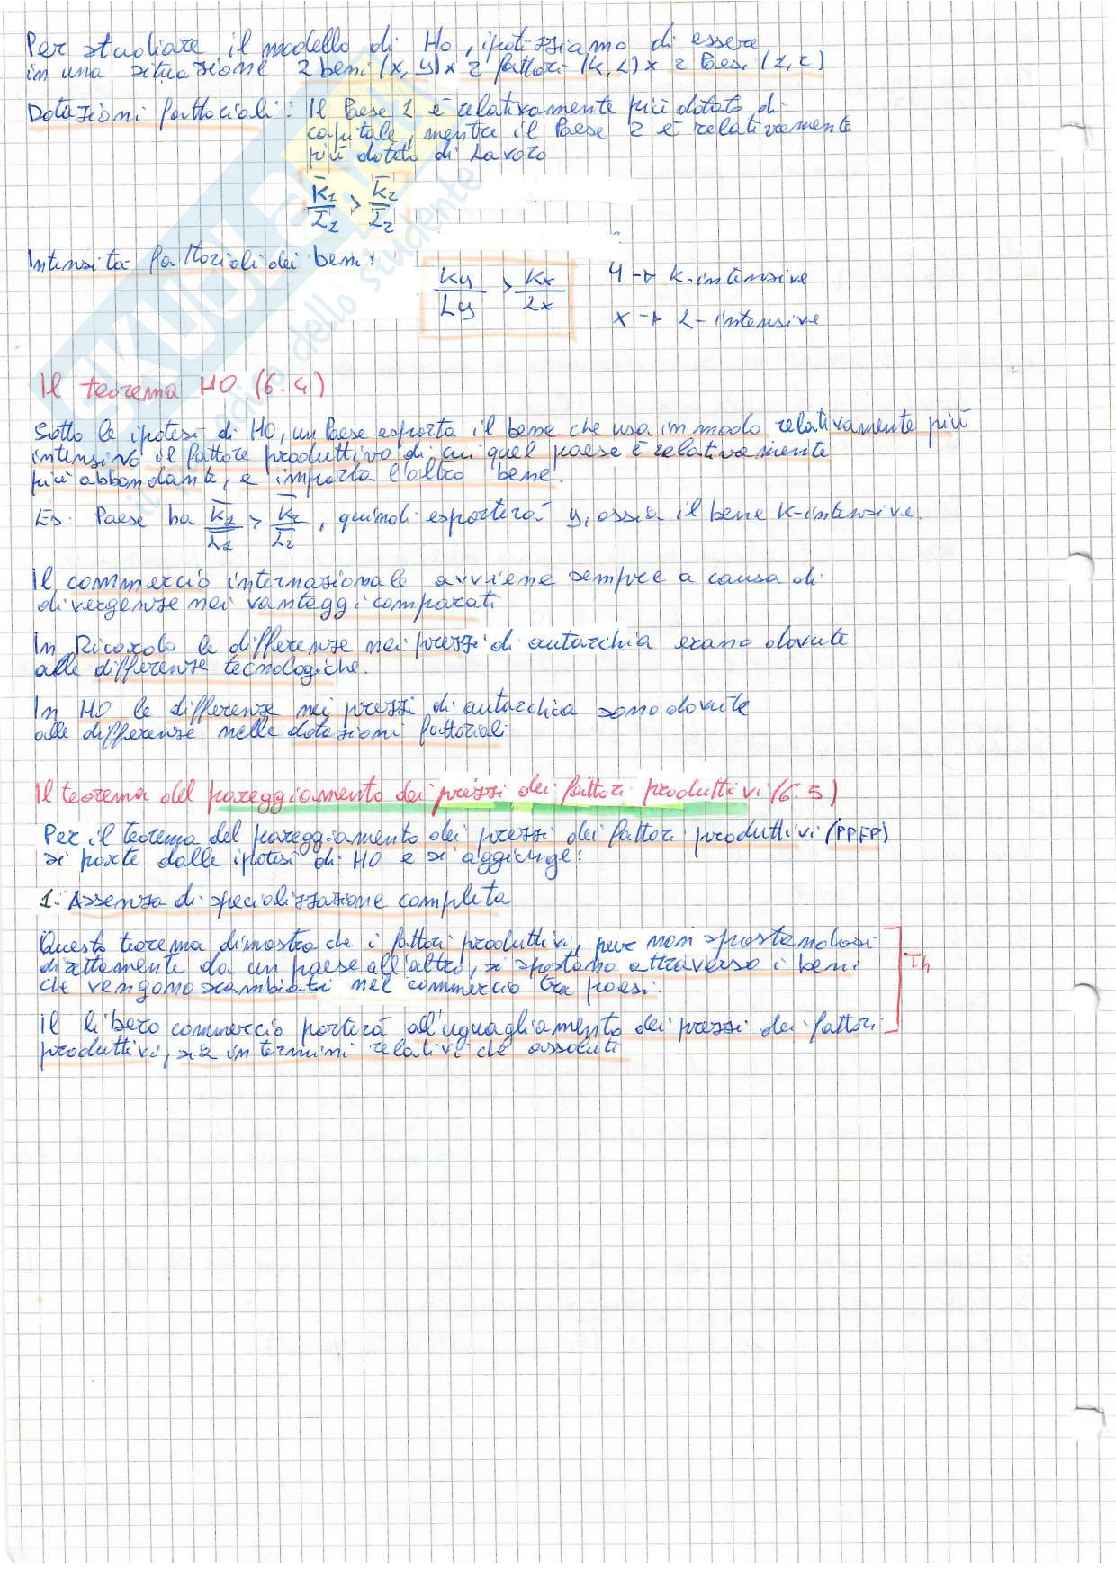 Per studiare il modello di HO, ipotizziamo di essere
in una situazione 2 beni (x, y) x 2 fattori (K, L) x 2 Paesi (1, 2)
Dotazioni fattoriali: Il Paese 1 è relativamente più dotato di
capitale, mentre il Paese 2 è relativamente
più dotato di Lavoro
K̄1/L̄1 > K̄2/L̄2
Intensità fattoriali dei beni:
Ky/Ly > Kx/Lx
Y → K-intensive
x → L-intensive
Il teorema HO (6.4)
Sotto le ipotesi di HO, un Paese esporta il bene che usa in modo relativamente più
intensivo il fattore produttivo di cui quel paese è relativamente
più abbondante, e importa l'altro bene.
Es. Paese ha K̄1/L̄1 > K̄2/L̄2, quindi esporterà y, ossia il bene K-intensive
Il commercio internazionale avviene sempre a causa di
divergenze nei vantaggi comparati
In Ricardo le differenze nei prezzi di autarchia erano dovute
alle differenze tecnologiche.
In HO le differenze nei prezzi di autarchica sono dovute
alle differenze nelle dotazioni fattoriali
Il teorema del pareggiamento dei prezzi dei fattori produttivi (6.5)
Per il teorema del pareggiamento dei prezzi dei fattori produttivi (PPFP)
si parte dalle ipotesi di HO e si aggiunge:
1. Assenza di specializzazione completa
Questo teorema dimostra che i fattori produttivi, pur non spostandosi
direttamente da un paese all'altro, si spostano attraverso i beni
che vengono scambiati nel commercio tra paesi.
Th
Il libero commercio porterà all'uguagliamento dei prezzi dei fattori
produttivi, sia in termini relativi che assoluti